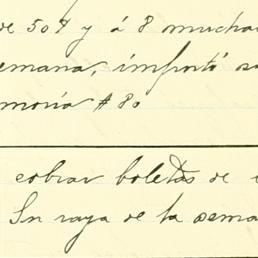 de 509 y á 8 muchac
emana, importó su
moria # 80
cobrar boletas de
Su raya de la sema